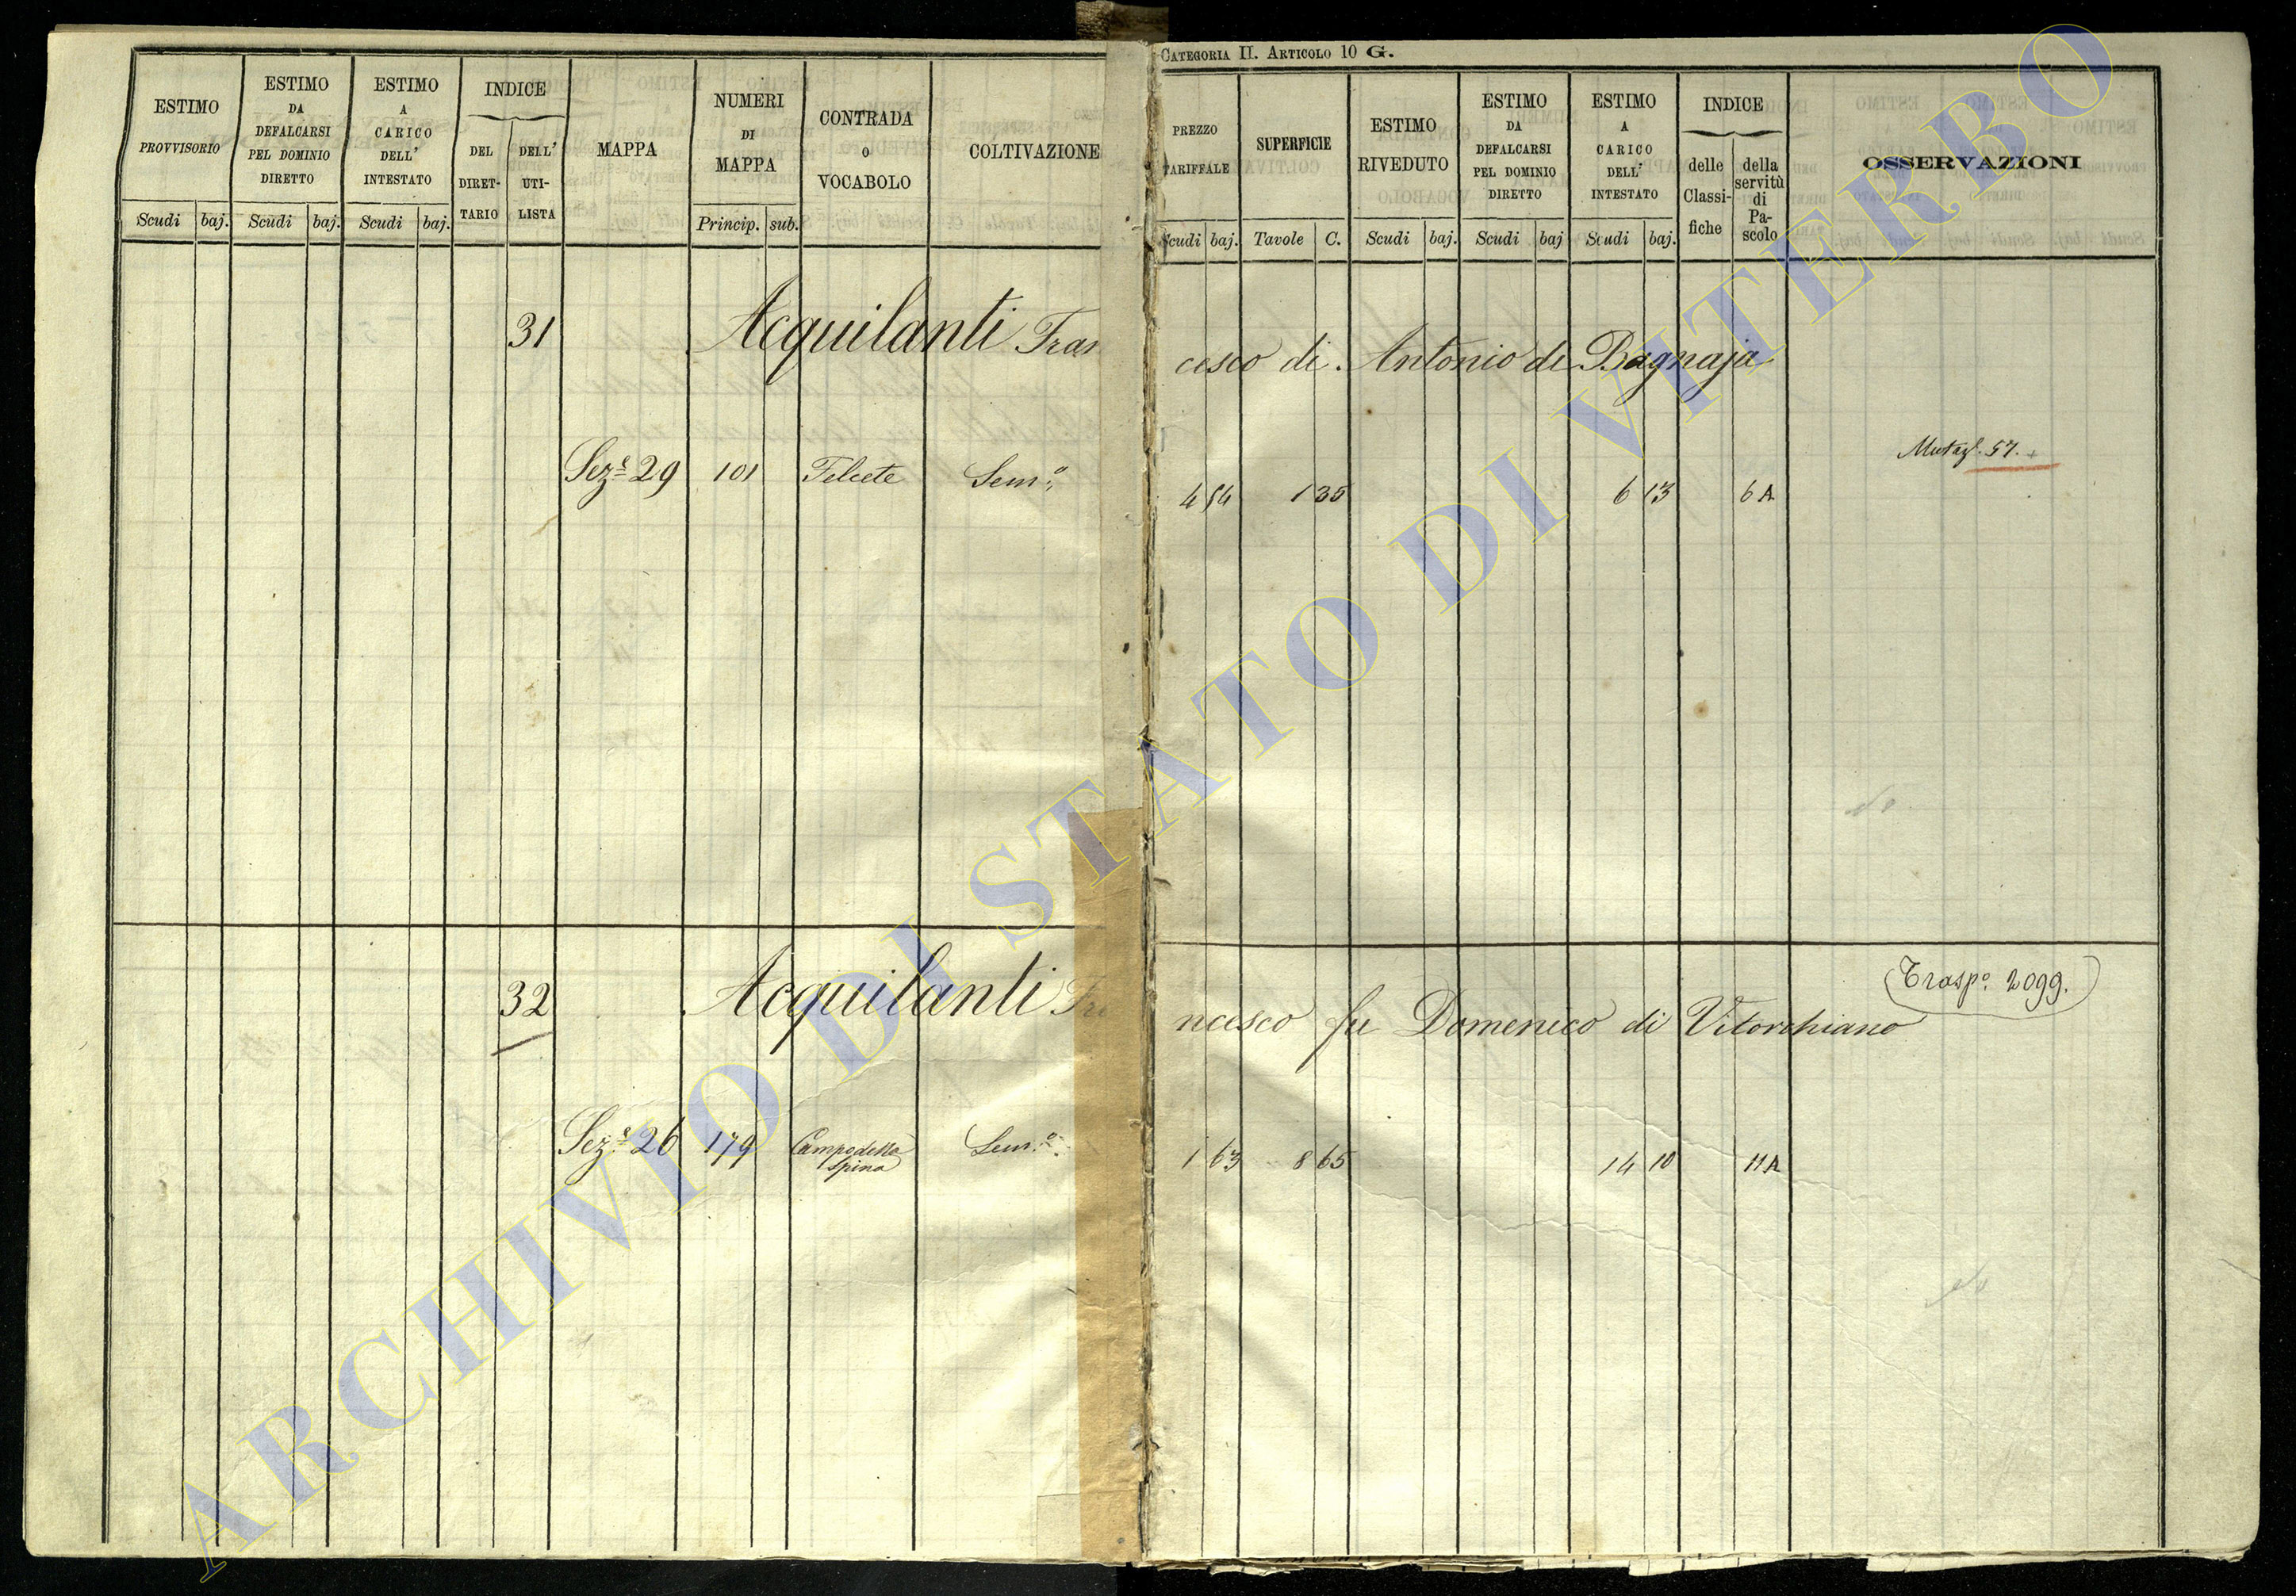 CATEGORIA II. ARTICOLO 10 G.
ESTIMO PROVVISORIO
Scudi baj.
ESTIMO DA DEFALCARSI PEL DOMINIO DIRETTO
Scudi baj.
ESTIMO A CARICO DELL' INTESTATO
Scudi baj.
INDICE
DEL DIRET-TARIO
DELL' UTI-LISTA
MAPPA
NUMERI DI MAPPA
Princip. sub.
CONTRADA O VOCABOLO
COLTIVAZIONE
PREZZO TARIFFALE
Scudi baj.
SUPERFICIE
Tavole C.
ESTIMO RIVEDUTO
Scudi baj.
ESTIMO DA DEFALCARSI PEL DOMINIO DIRETTO
Scudi baj
ESTIMO A CARICO DELL' INTESTATO
Scudi baj.
INDICE
delle Classi-fiche
della servitù di Pa-scolo
OSSERVAZIONI
31 Acquilanti Francesco di Antonio di Bagnaja
Mutazl. 57.
Seze 29 101 Felcete Semo 4 54 1 35 6 13 6 A
Traspo. 2099.
32 Acquilanti Francesco fu Domenico di Vitorchiano
Seze 26 179 Campo della Spina Semo 1 63 8 65 14 10 11 A
ARCHIVIO DI STATO DI VITERBO